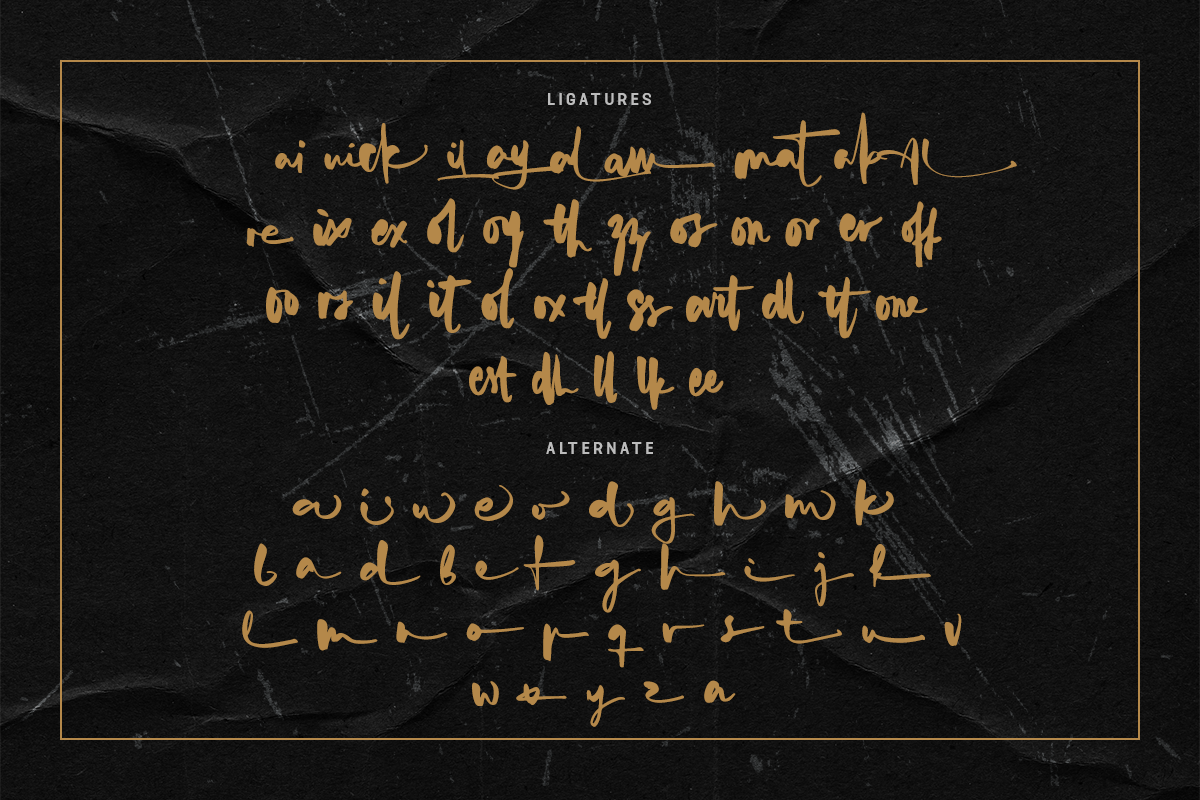 LIGATURES
ai nick il ay d am mat ak
re ix ex ol oy th zz os on or er off
oo rs il it ol ox tl ss art dl tt one
est dh ll lk ee
ALTERNATE
a i w e o d g h m k
b a d b e t g h i j k
l m n o p q r s t u v
w x y z a